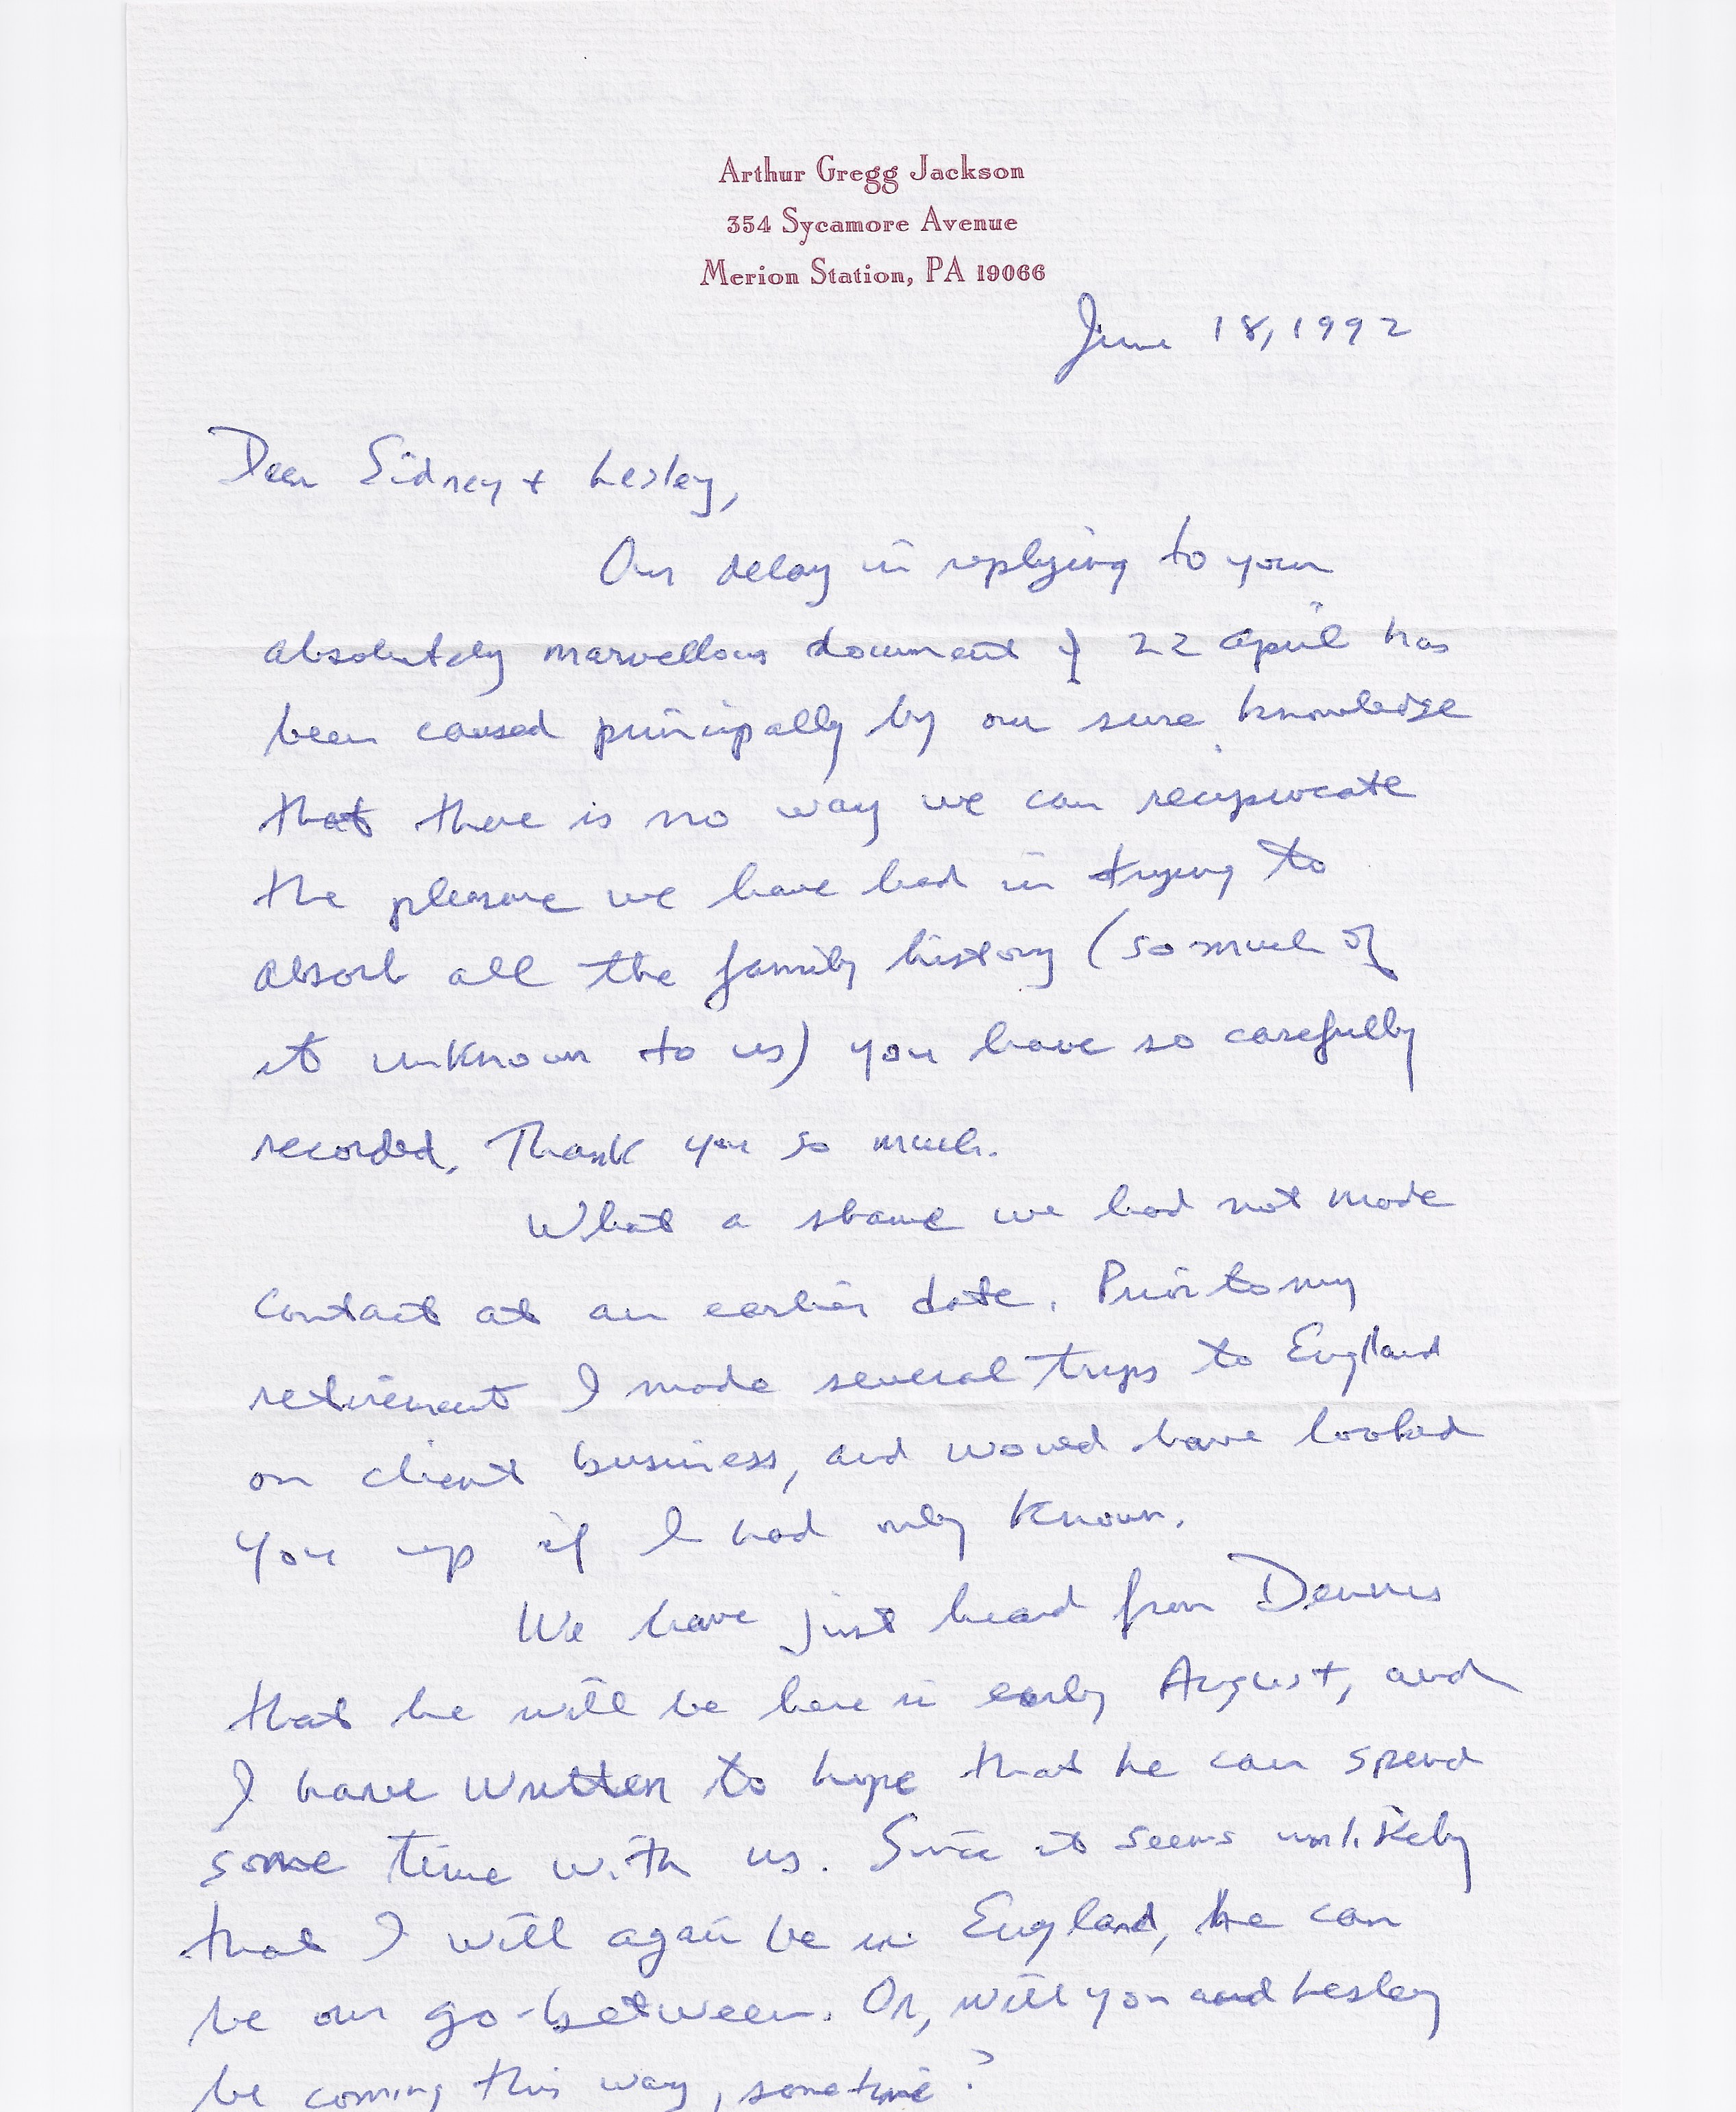 Arthur Gregg Jackson
354 Sycamore Avenue
Merion Station, PA 19066
June 18, 1992
Dear Sidney + Lesley,
Our delay in replying to your
absolutely marvellous document of 22 April has
been caused principally by our sure knowledge
that there is no way we can reciprocate
the pleasure we have had in trying to
absorb all the family history (so much of
it unknown to us) you have so carefully
recorded. Thank you so much.
What a shame we had not made
contact at an earlier date. Prior to my
retirement I made several trips to England
on client business, and would have looked
you up if I had only known.
We have just heard from Dennis
that he will be here in early August, and
I have written to hope that he can spend
some time with us. Since it seems unlikely
that I will again be in England, he can
be our go-between. Or, will you and Lesley
be coming this way, sometime?